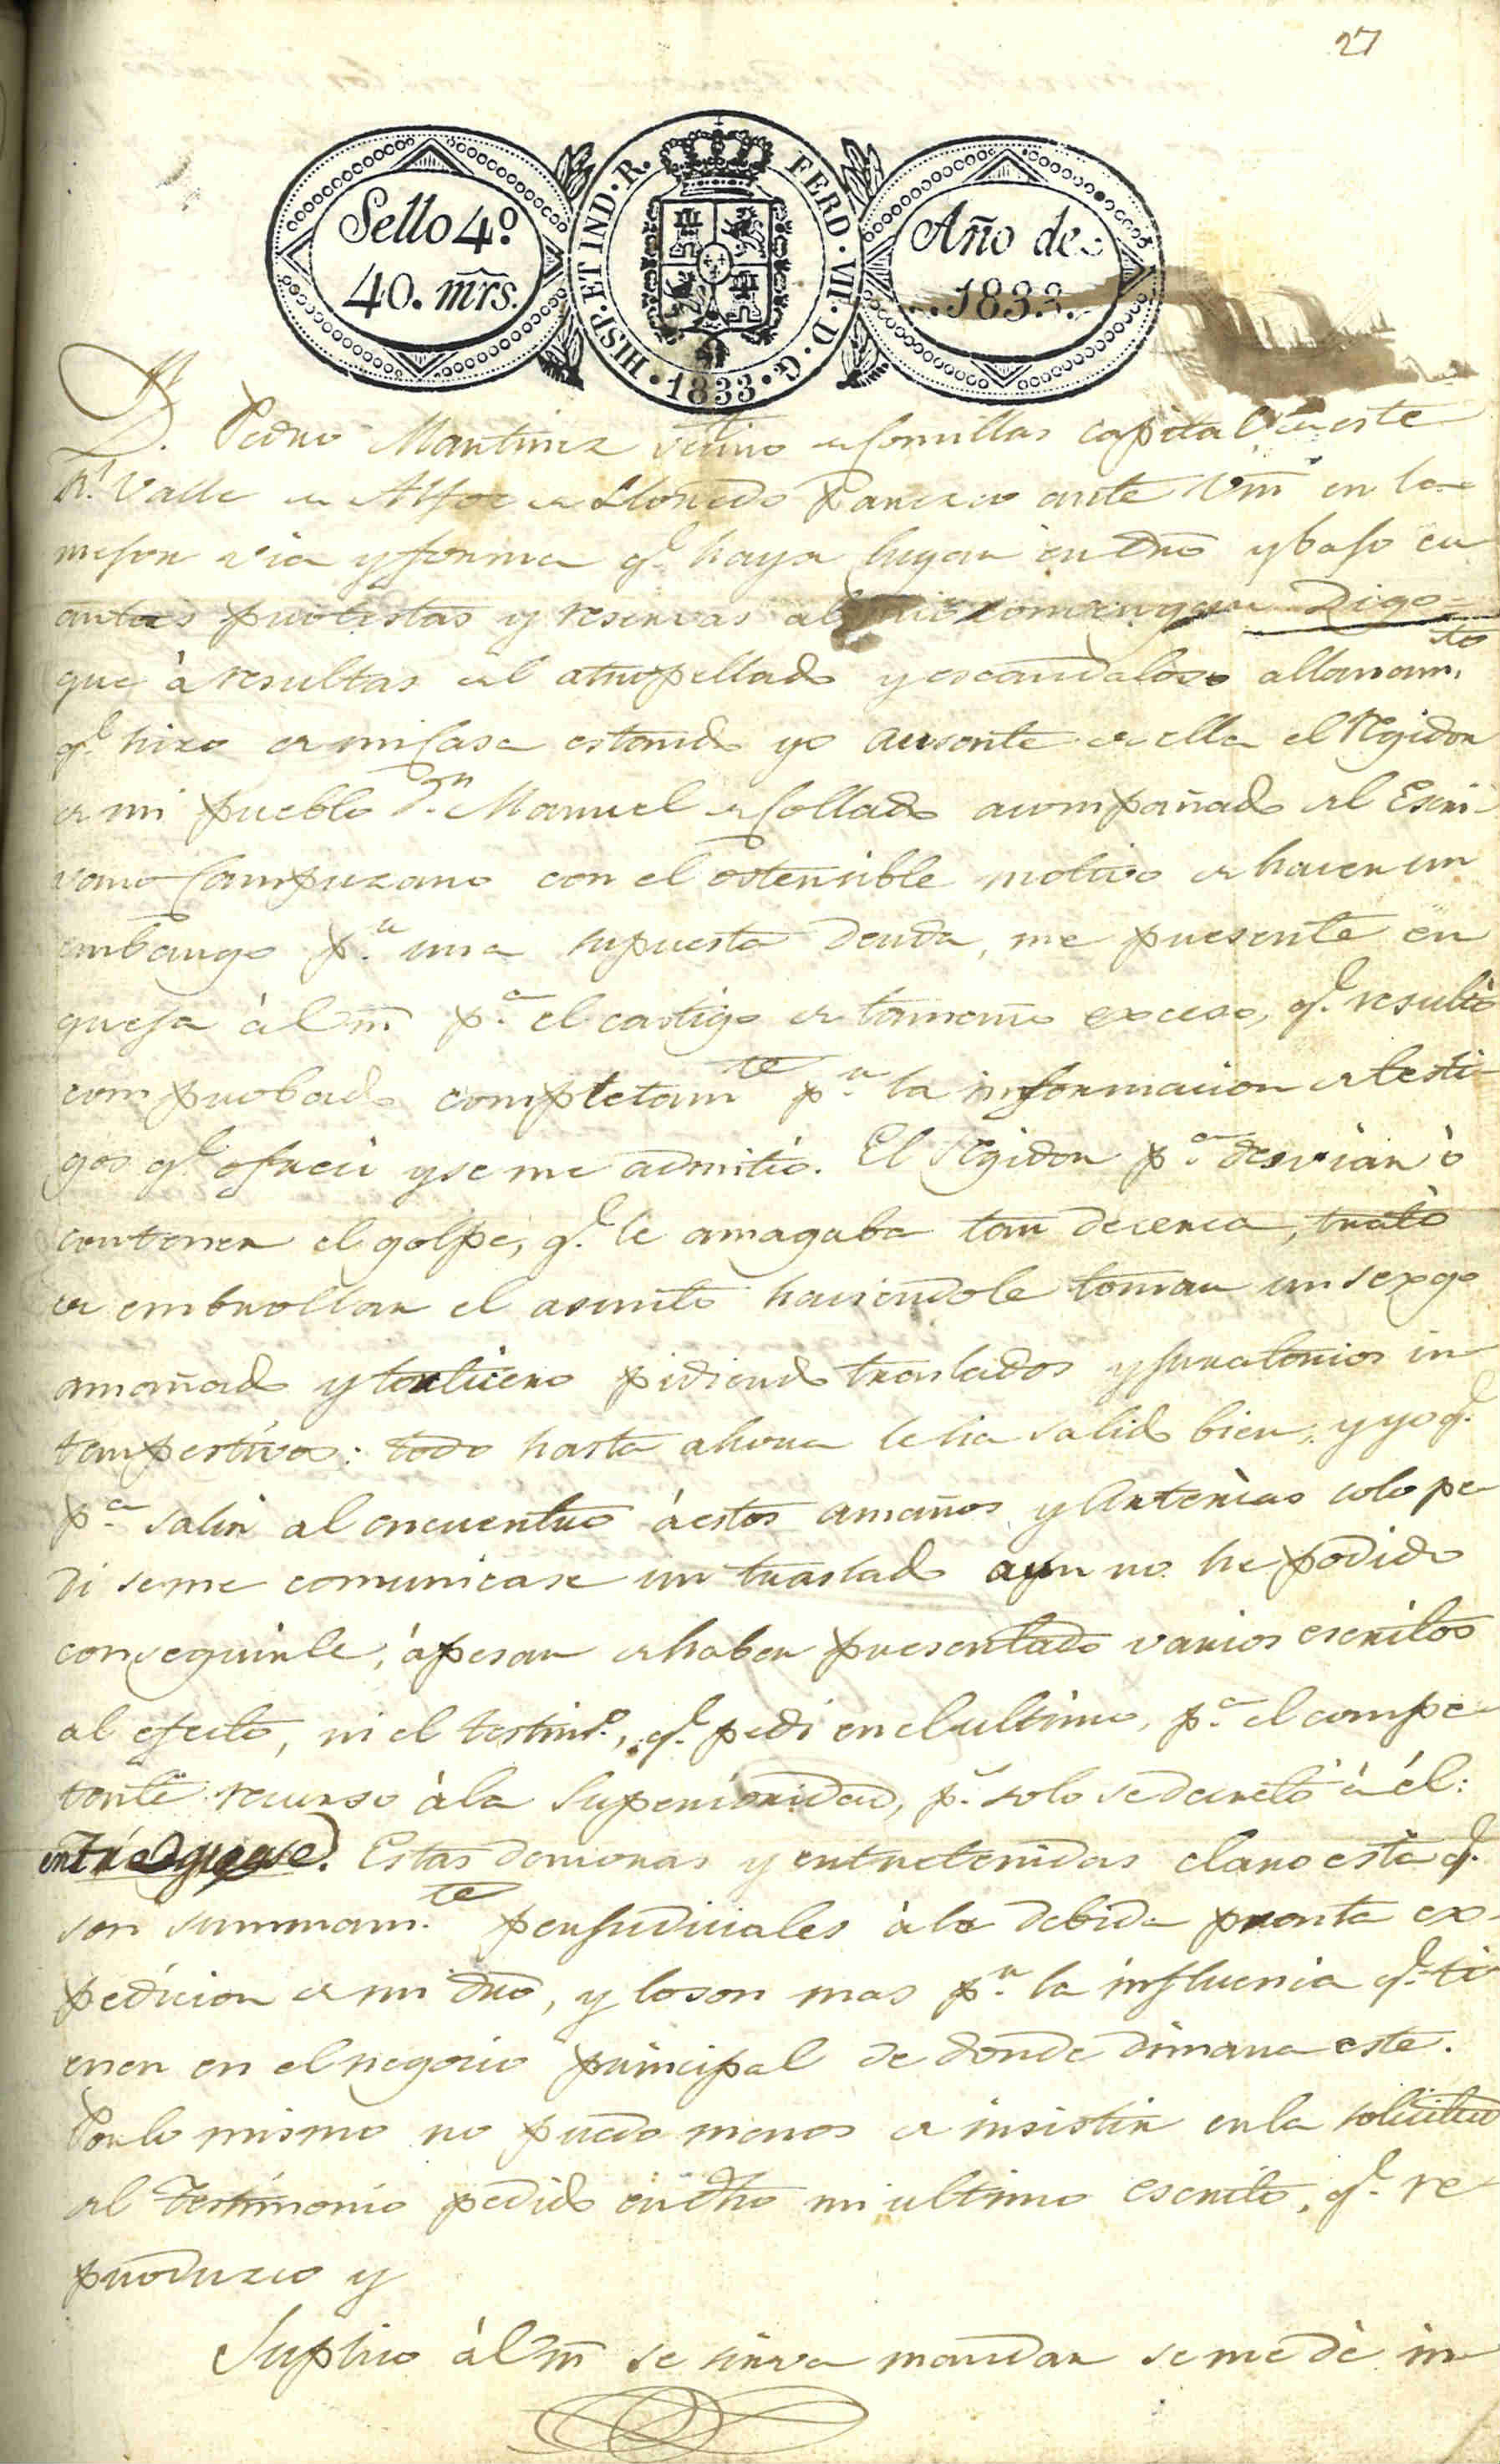 27
Sello 4º
40. mrs.
HISP. ET IND. R. FERD. VII. D. G.
1833
Año de
1833.
D. Pedro Martinez vecino de Comillas capital de este
Rl. Valle de Alfoz de Lloredo Parezco ante Vm̃ en la
mejor via y forma q.e haya lugar en dro y bajo cu
antas protestas y reservas al convengan Digo
que à resultas del atropellado y escandaloso allanam.to
q.e hizo de mi Casa estando yo ausente de ella el Regidor
de mi pueblo D.n Manuel de Collado acompañado del Escri-
vano Campuzano con el ostensible motivo de hacer un
embargo p.r una supuesta deuda, me presente en
queja à Vm̃ p.a el castigo de tamaño exceso, q.e resultò
comprobado completam.te p.r la informacion de testi-
gos q.e ofrecì y se me admitiò. El Regidor p.a desviar ò
contener el golpe, q.e le amagaba tan de cerca, tratò
de embrollar el asunto haciendole tomar un sexgo
amañado y torticero pidiendo traslados y juratorios in
tempestivos: todo hasta ahora le ha salido bien, y yo q.e
p.a salir al encuentro à estos amaños y Arterias solo pe
di se me comunicase un traslado aun no he podido
conseguirle, àpesar de haber presentado varios escritos
al efecto, ni el testim.o, q.e pedi en el ultimo, p.a el compe-
tente recurso à la Superioridad, p.s solo se decretò à él:
entréguese. Estas demoras y entretenidas claro està q.e
son summam.te perjudiciales à la debida pronta ex-
pedicion de mi dro, y lo son mas p.r la influencia q.e ti
enen en el negocio principal de donde dimana este.
Por lo mismo no puedo menos de insistir en la solicitud
del Testimonio pedido en dho mi ultimo escrito, q.e re-
produzco y
Suplico à Vm̃ se sirva mandar se me dè in